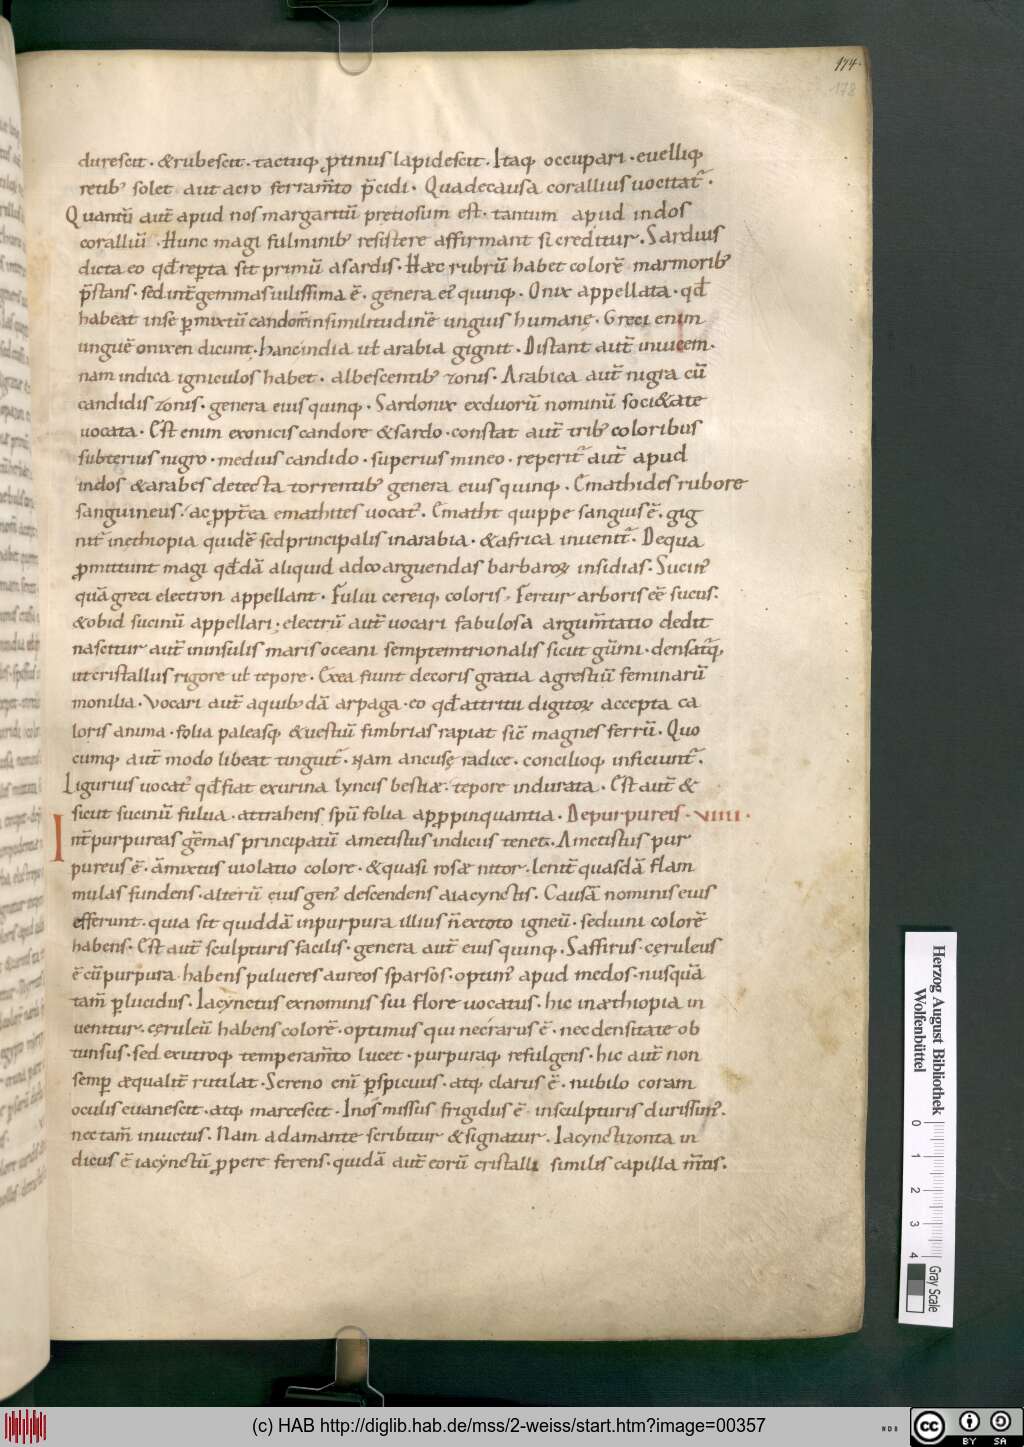 174.
178
durescit. &rubescit. tactuq; ꝓtinus lapidescit. Itaq; occupari. euelliq;
retib; solet aut acro ferram̄to p̄cidi. Quadecausa corallius uocitat᷑.
Quantū aut̄ apud nos margaritū pretiosum est. tantum apud indos
coralliū. Hunc magi fulminib; resistere affirmant si creditur. Sardius
dicta eo qđ reꝑta sit primū a sardis. Hæc rubrū habet colorē marmorib;
p̄stans. sed int̄ gemmas uilissima ē. genera ei᷒ quinq;. Onix appellata. qđ
habeat inse ꝑmixtū candorē insimilitudinē unguis humanę. Greci enim
unguē onixen dicunt. hanc india uł arabia gignit. Distant aut̄ inuicem.
nam indica igniculos habet. albescentib; zonis. Arabica aut̄ nigra cū
candidis zonis. genera eius quinq;. Sardonix exduorū nominū soci&ate
uocata. Est enim exonicis candore &sardo. constat aut̄ trib; coloribus
subterius nigro. medius candido. superius mineo. reperit᷑ aut̄ apud
indos &arabes detecta torrentib; genera eius quinq;. Emathides rubore
sanguineus. ac ꝓpt̄ea emathites uocat᷑. Emath̄ quippe sanguis ē. gig
nit᷑ inethiopia quidē sed principalis inarabia. &africa inuenit᷑. Dequa
ꝓmittunt magi qđdā aliquid adcoarguendas barbaroꝝ insidias. Sucin᷒
quā greci electron appellant. Fului cereiq; coloris. Fertur arboris eē sucus.
&obid sucinū appellari; electrū aut̄ uocari fabulosa argum̄tatio dedit
nascitur aut̄ ininsulis maris oceani septemtrionalis sicut gūmi. densat᷑q;
ut cristallus rigore uł tepore. Exea fiunt decoris gratia agrestiū feminarū
monilia. Vocari aut̄ aquib;dā arpaga. eo qđ attritu digitoꝝ accepta ca
loris anima. folia paleasq; &uestiū fimbrias rapiat sic̄ magnes ferrū. Quo
cumq; aut̄ modo libeat tinguit᷑. Nam ancusę radice. concilioq; inficiunt᷑.
Ligurius uocat᷑ qđ fiat exurina lyncis bestiæ. tepore indurata. Est aut̄ &
sicut sucinū fulua. attrahens spū folia apꝓpinquantia. Depurpureis. VIIII.
Int̄ purpureas gēmas principatū ametistus indicus tenet. Ametistus pur
pureus ē. āmixtus uiolatio colore. &quasi rosæ nitor. lenit̄ quasdā flam
mulas fundens. alterū eius gen᷒ descendens aiacynctis. Causā nominis eius
efferunt. quia sit quiddā inpurpura illius n̄ extoto igneū. sed uini colorē
habens. Est aut̄ sculpturis facilis. genera aut̄ eius quinq;. Saffirus. cęruleus
ē cū purpura. habens pulueres aureos sparsos. optim᷒ apud medos. nusquā
tam̄ ꝑlucidus. Iacynctus exnominis sui flore uocatus. hic inæthiopia in
uenitur. cęruleū habens colorē. optimus qui nec rarus ē. nec densitate ob
tunsus. sed exutroq; temperam̄to lucet. purpuraq; refulgens. hic aut̄ non
semꝑ æqualit̄ rutilat. Sereno eni᷒ ꝑspicuus. atq; clarus ē. nubilo coram
oculis euanescit. atq; marcescit. Inos missus frigidus ē. insculpturis durissim᷒.
nec tam̄ inuictus. Nam adamante scribitur &signatur. Iacynctizonta in
dicus ē iacynctū ꝓpere ferens. quidā aut̄ eorū cristalli similis capilla m̄tis.
Herzog August Bibliothek
Wolfenbüttel
0 1 2 3 4
Gray Scale
(c) HAB http://diglib.hab.de/mss/2-weiss/start.htm?image=00357
cc BY SA